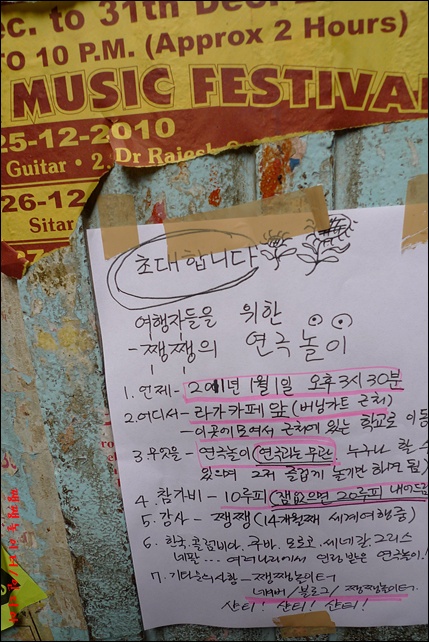 ec. to 31th Dec.
TO 10 P.M. (Approx 2 Hours)
MUSIC FESTIVAL
25-12-2010
Guitar • 2. Dr Rajes
26-12
Sitar
초대합니다
여행자들을 위한
-쨍쨍의 연극놀이
1. 언제- 2011년 1월 1일 오후 3시 30분
2. 어디서- 라가카페 앞 (버닝가트 근처)
-이곳에 모여서 근처에 있는 학교로 이동
3. 무엇을- 연극놀이 (연극과는 무관, 누구나 할 수
있으며 그저 즐겁게 놀기만 하면 됨)
4. 참가비- 10루피 (잼 없으면 20루피 내어드림
5. 강사 - 쨍쨍 (14개월째 세계여행중)
6. 한국, 콜럼비아, 쿠바, 모로코, 세네갈, 그리스
네팔... 여러나라에서 연락받은 연극놀이!
7. 기타문의사항 - 쨍쨍놀이터
네이버/블로그/ 쨍쨍놀이터
산티! 산티! 산티!